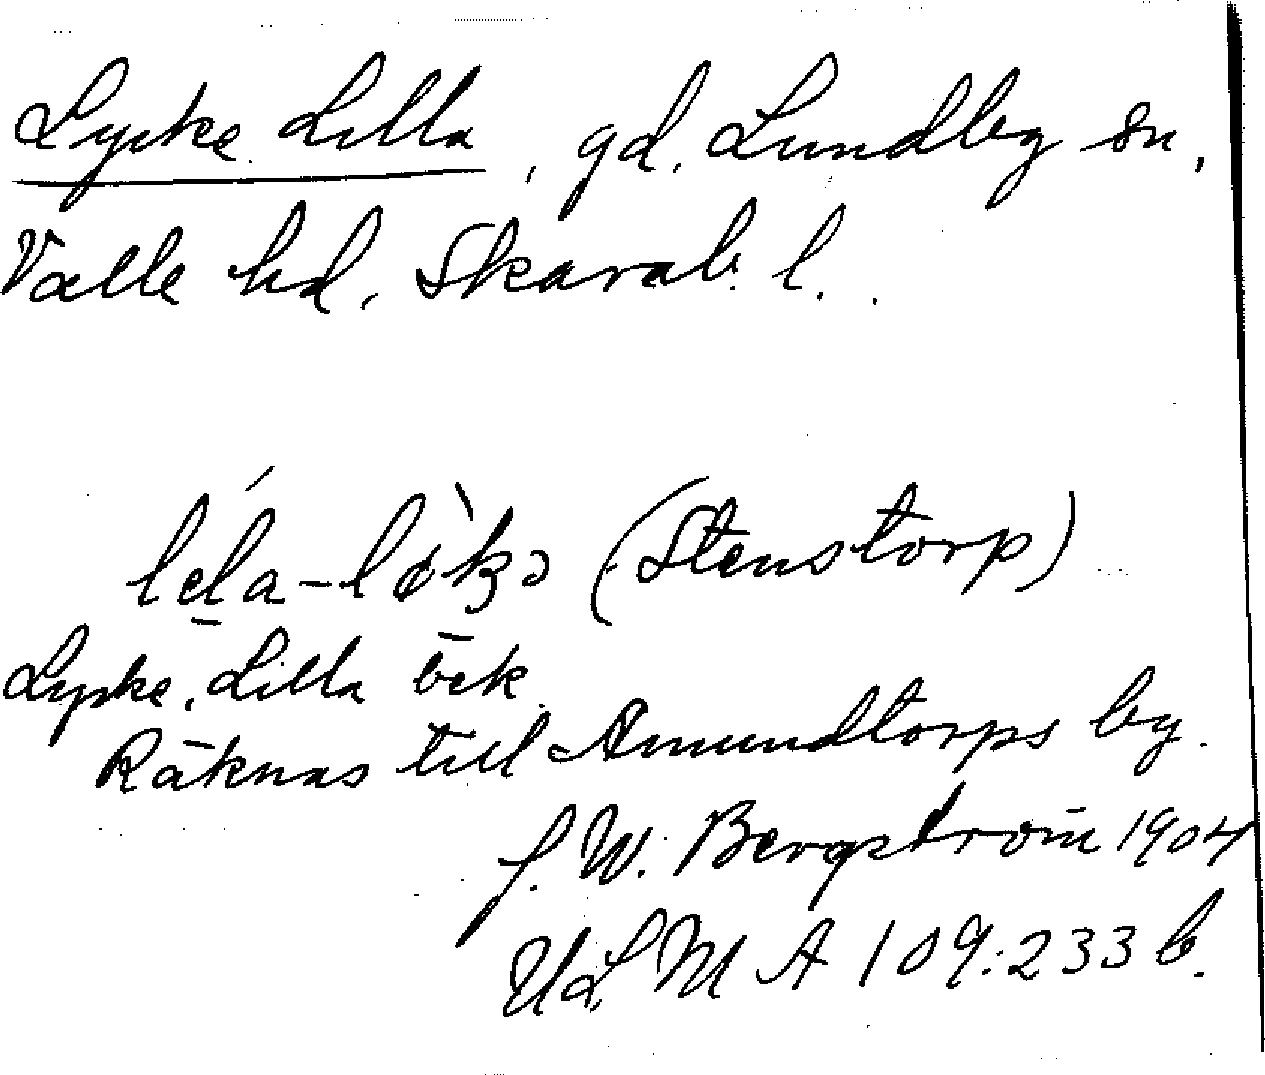 Lycke Lilla, gd. Lundby sn,
Valle hd, Skarab. l.
(Stenstorp)
Lycke, Lilla öek.
Räknas till Amundtorps by.
J. W. Bergström 1904
ULMA 109:233 b.